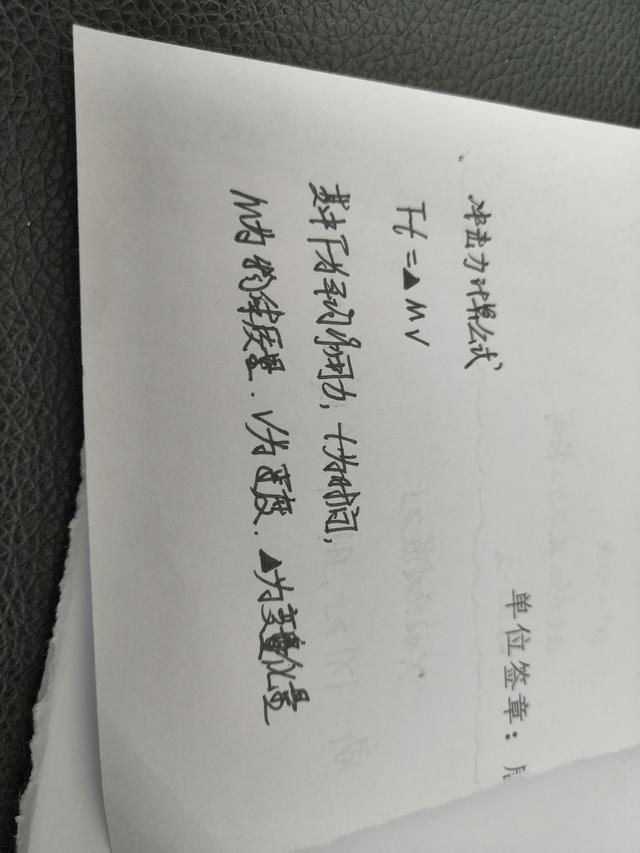 冲击力计算公式
Ft=▲MV
其中F为平均作用力，t为时间，
M为物体质量．V为速度．▲为变量化量
单位签章：